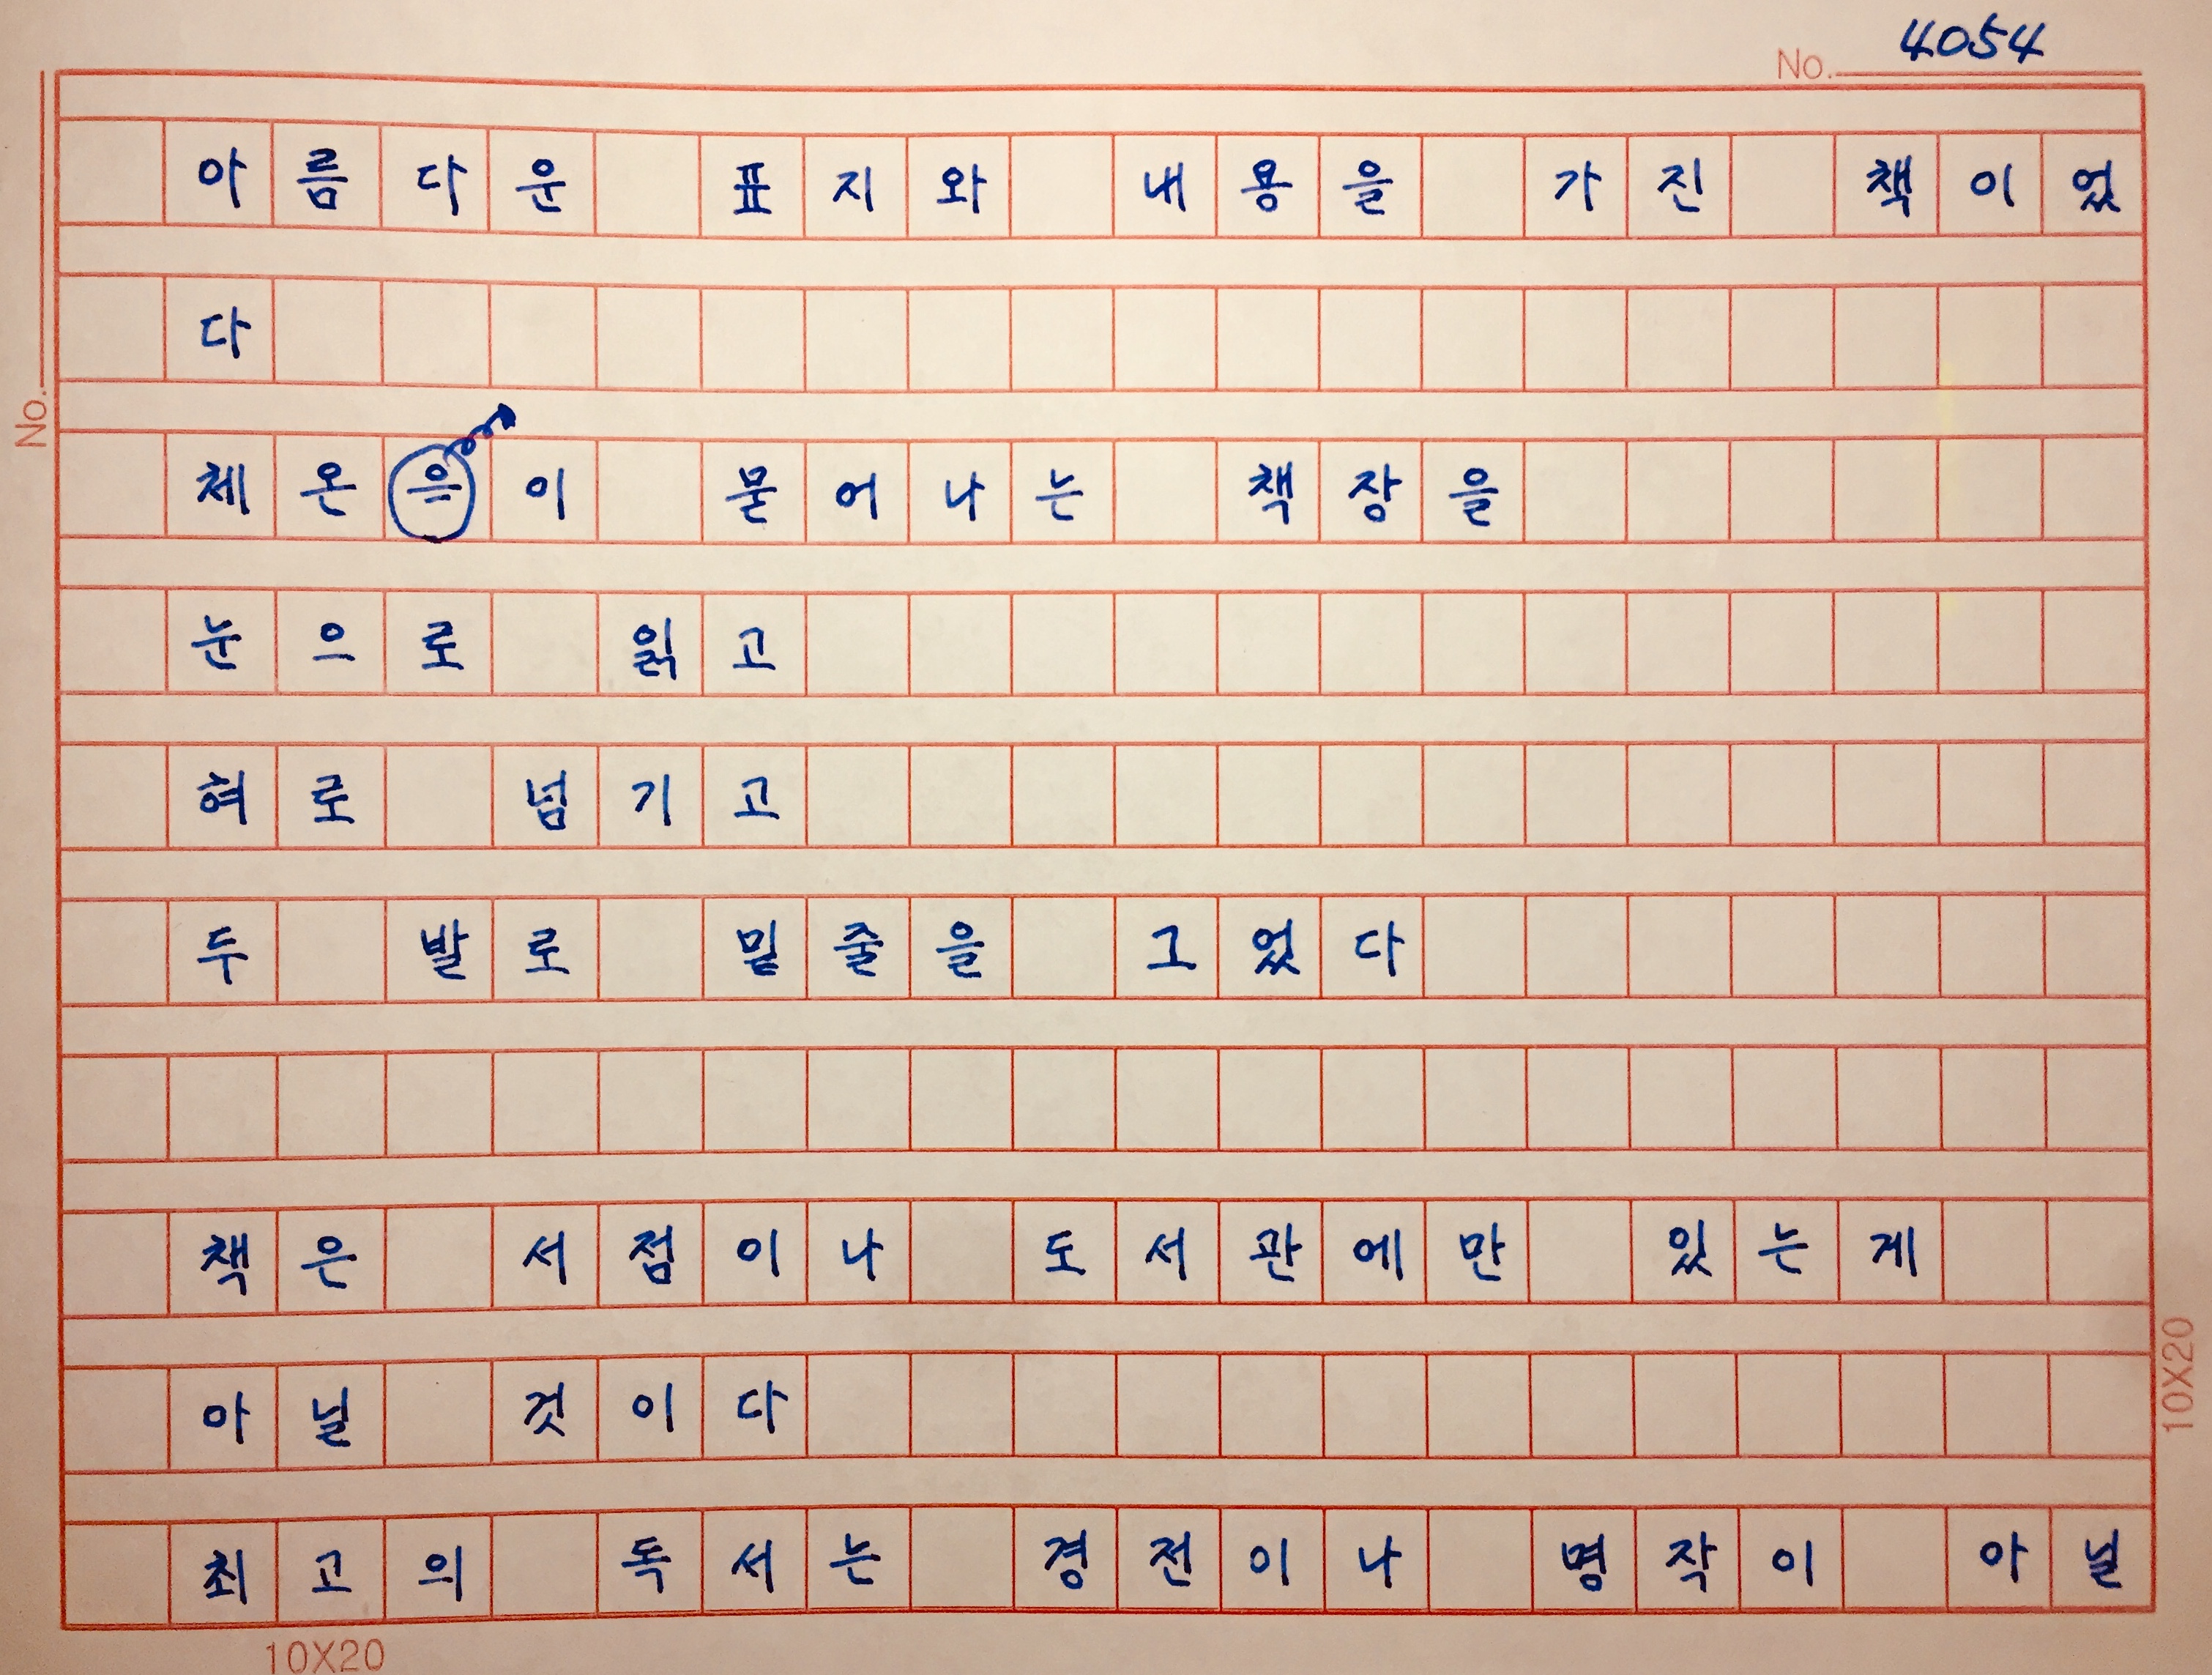 No. 4054
아름다운 표지와 내용을 가진 책이었
다
No.
체온은이 묻어나는 책장을
눈으로 읽고
혀로 넘기고
두 발로 밑줄을 그었다
책은 서점이나 도서관에만 있는게
아닐 것이다
최고의 독서는 경전이나 명작이 아닐
10X20
10X20